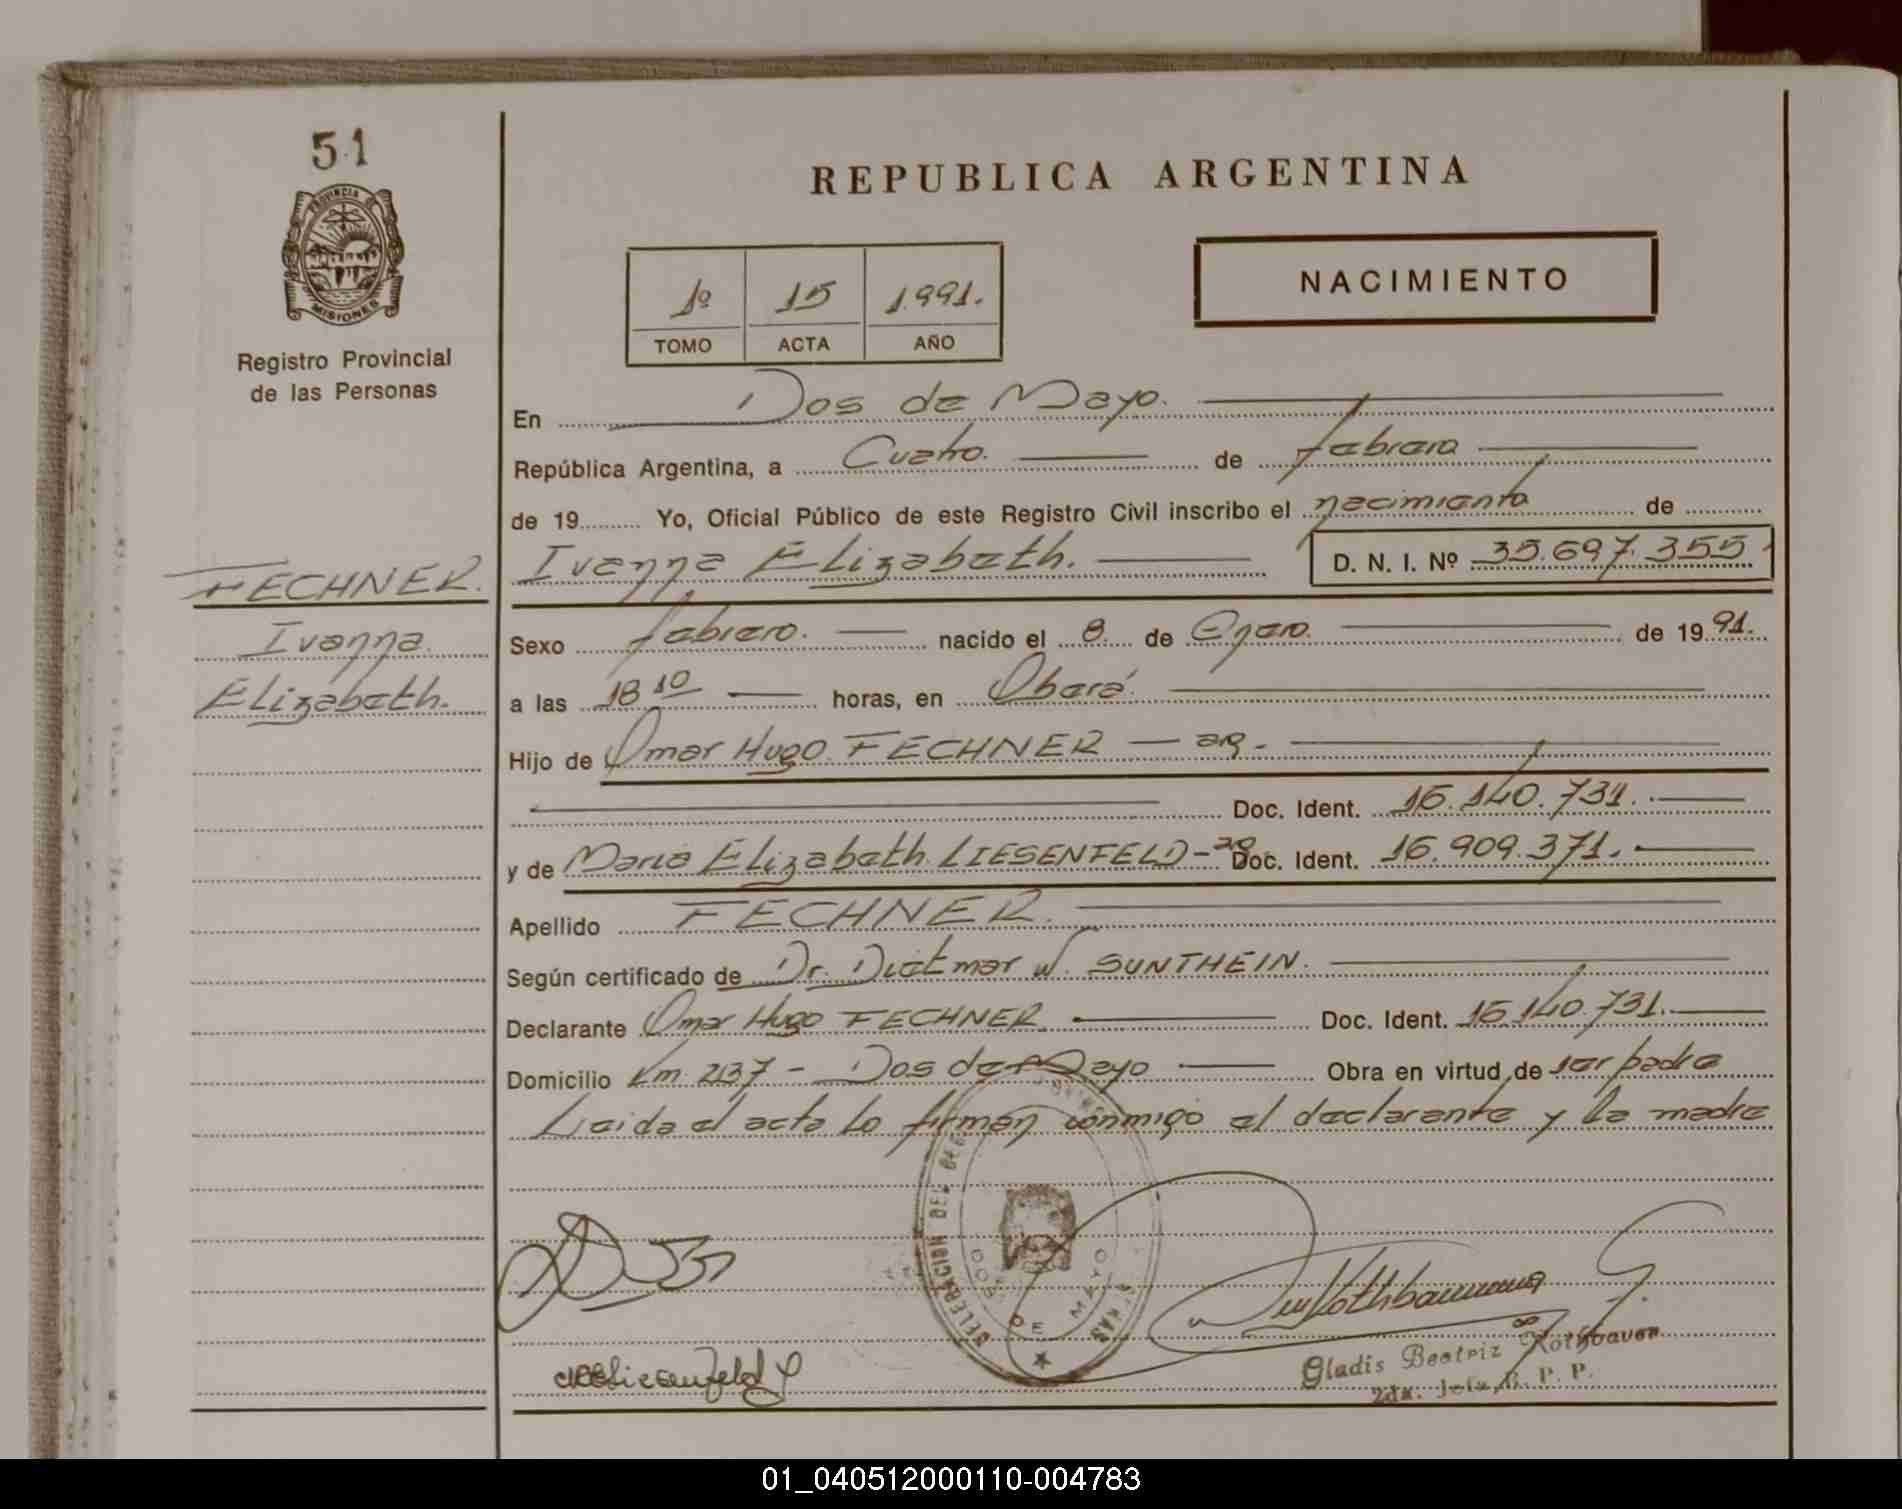 51
PROVINCIA DE
MISIONES
Registro Provincial
de las Personas
FECHNER.
Ivanna
Elizabeth.
REPUBLICA ARGENTINA
NACIMIENTO
1º 15 1.991.
TOMO ACTA AÑO
En Dos de Mayo.
República Argentina, a Cuatro. de febrero
de 19 Yo, Oficial Público de este Registro Civil inscribo el nacimiento de
Ivanna Elizabeth. D. N. I. Nº 35.697.355
Sexo febrero. nacido el 8 de Enero. de 19 91.
a las 18 10 horas, en Oberá.
Hijo de Omar Hugo FECHNER — arg.
Doc. Ident. 16.140.731.
y de Maria Elizabeth LIESENFELD - arg. Doc. Ident. 16.909.371.
Apellido FECHNER.
Según certificado de Dr. Dietmar W. SUNTHEIN.
Declarante Omar Hugo FECHNER Doc. Ident. 16.140.731.
Domicilio Km. 237 - Dos de Mayo Obra en virtud de ser padre
Leida el acta lo firman conmigo el declarante y la madre
DELEGACION DEL
DOS DE MAYO
Gladis Beatriz
2da. Jefa R. P. P.
01_040512000110-004783